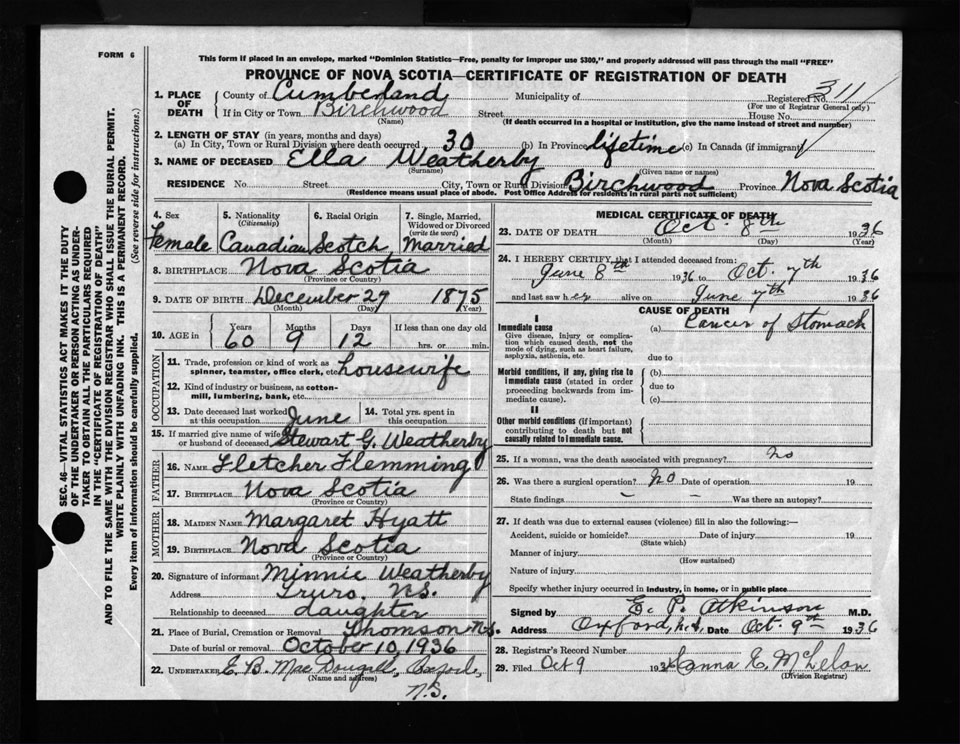 FORM 6
This form if placed in an envelope, marked "Dominion Statistics—Free, penalty for improper use $300," and properly addressed will pass through the mail "FREE"
PROVINCE OF NOVA SCOTIA—CERTIFICATE OF REGISTRATION OF DEATH
SEC. 46—VITAL STATISTICS ACT MAKES IT THE DUTY
OF THE UNDERTAKER OR PERSON ACTING AS UNDER-
TAKER TO OBTAIN ALL THE PARTICULARS REQUIRED
IN THE "CERTIFICATE OF REGISTRATION OF DEATH"
AND TO FILE THE SAME WITH THE DIVISION REGISTRAR WHO SHALL ISSUE THE BURIAL PERMIT.
WRITE PLAINLY WITH UNFADING INK. THIS IS A PERMANENT RECORD.
Every item of information should be carefully supplied. (See reverse side for instructions.)
1. PLACE OF DEATH County of Cumberland Municipality of Registered No. 311
(For use of Registrar General only)
If in City or Town Birchwood Street House No.
(Name) (If death occurred in a hospital or institution, give the name instead of street and number)
2. LENGTH OF STAY (in years, months and days)
(a) In City, Town or Rural Division where death occurred 30 (b) In Province lifetime (c) In Canada (if immigrant)
3. NAME OF DECEASED Ella Weatherby
(Surname) (Given name or names)
RESIDENCE No. Street City, Town or Rural Division Birchwood Province Nova Scotia
(Residence means usual place of abode. Post Office Address for residents in rural parts not sufficient)
4. Sex 5. Nationality (Citizenship) 6. Racial Origin 7. Single, Married, Widowed or Divorced (write the word)
Female Canadian Scotch Married
8. BIRTHPLACE Nova Scotia
(Province or Country)
9. DATE OF BIRTH December 27 1875
(Month) (Day) (Year)
10. AGE in Years Months Days If less than one day old
60 9 12 hrs. or min.
OCCUPATION
11. Trade, profession or kind of work as spinner, teamster, office clerk, etc. housewife
12. Kind of industry or business, as cotton-mill, lumbering, bank, etc.
13. Date deceased last worked at this occupation June 14. Total yrs. spent in this occupation
15. If married give name of wife or husband of deceased Stewart G. Weatherby
FATHER
16. NAME Fletcher Flemming
17. BIRTHPLACE Nova Scotia
(Province or Country)
MOTHER
18. MAIDEN NAME Margaret Hyatt
19. BIRTHPLACE Nova Scotia
(Province or Country)
20. Signature of informant Minnie Weatherby
Address Truro, N.S.
Relationship to deceased daughter
21. Place of Burial, Cremation or Removal Thomson N.S.
Date of burial or removal October 10, 1936
22. UNDERTAKER E. B. MacDougall, N.S.
(Name and address)
MEDICAL CERTIFICATE OF DEATH
23. DATE OF DEATH Oct. 8th 1936
(Month) (Day) (Year)
24. I HEREBY CERTIFY that I attended deceased from:
June 8th 1936 to Oct. 7th 1936
and last saw her alive on June 7th 1936
CAUSE OF DEATH
I
Immediate cause (a) Cancer of Stomach
Give disease, injury or complica-
tion which caused death, not the
mode of dying, such as heart failure,
asphyxia, asthenia, etc. due to
Morbid conditions, if any, giving rise to (b)
immediate cause (stated in order due to
proceeding backwards from im-
mediate cause). (c)
II
Other morbid conditions (if important)
contributing to death but not
causally related to immediate cause.
25. If a woman, was the death associated with pregnancy? no
26. Was there a surgical operation? no Date of operation 19
State findings Was there an autopsy?
27. If death was due to external causes (violence) fill in also the following:—
Accident, suicide or homicide? Date of injury 19
(State which)
Manner of injury
(How sustained)
Nature of injury
Specify whether injury occurred in industry, in home, or in public place
Signed by E. P. Atkinson M.D.
Address Oxford, N.S. Date Oct. 9th 1936
28. Registrar's Record Number
29. Filed Oct 9 1936
(Division Registrar)